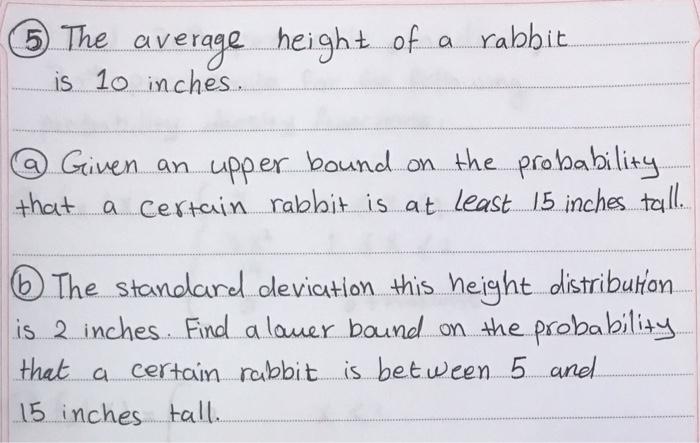 ⑤ The average height of a rabbit
is 10 inches.
ⓐ Given an upper bound on the probability
that a certain rabbit is at least 15 inches tall.
ⓑ The standard deviation this height distribution
is 2 inches. Find a lower bound on the probability
that a certain rabbit is between 5 and
15 inches tall.